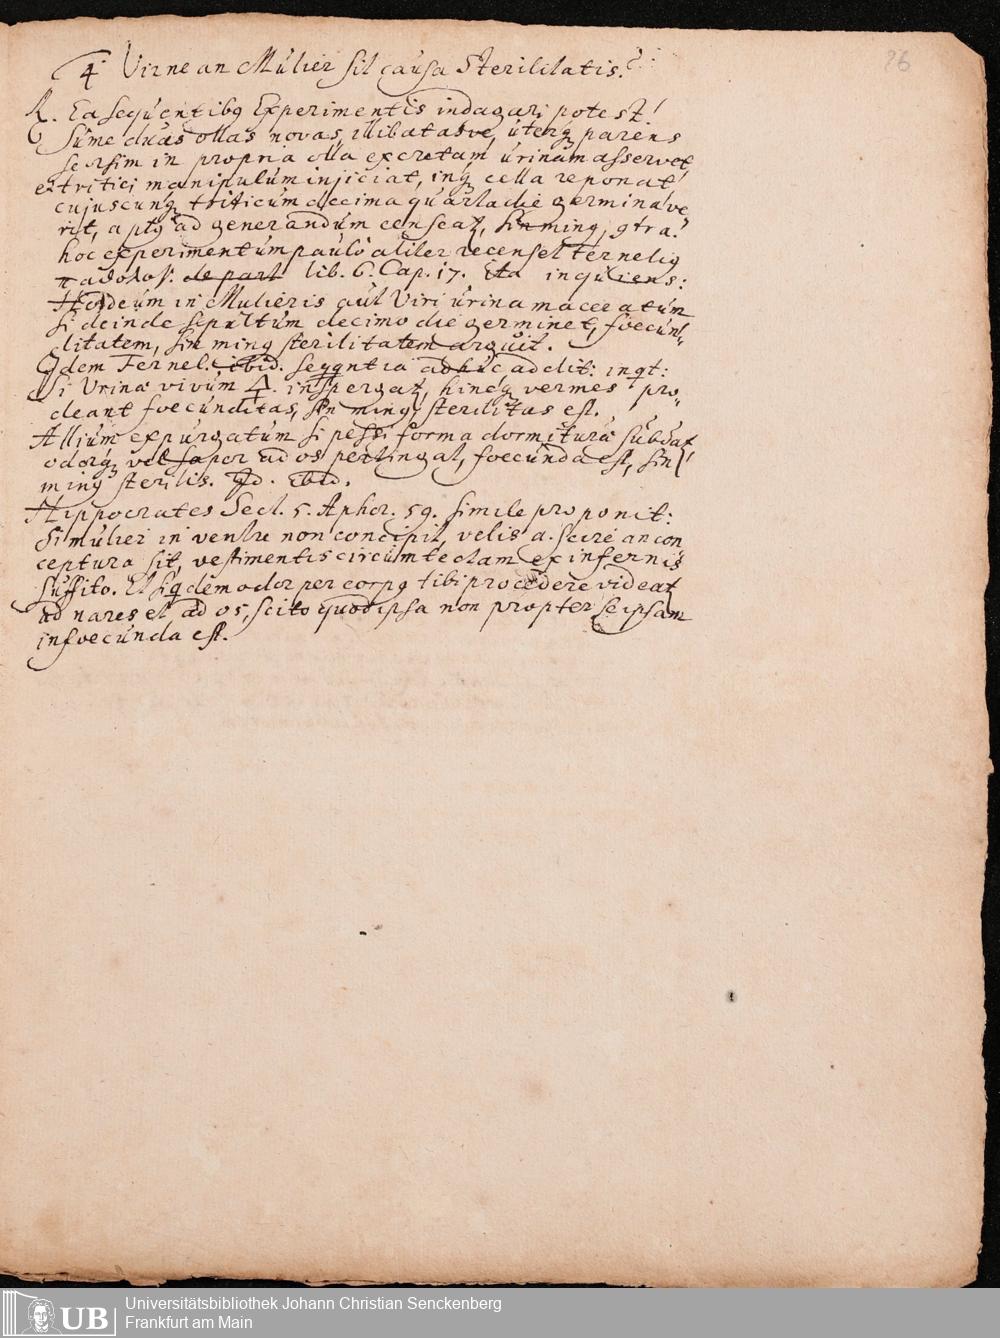 26
4. Virne an Mulier sit causa Sterilitatis?
R. Ea sequentibq Experimentis indagari potest!
Sume duas ollas novas, illibatasve, uterq parens
seorsim in propria olla excretam urinam asservet
et tritici manipulum injiciat, inq cella reponat
cujuscunq triticum decima quarta die germinave
rit, aptq ad generandum censeat, sin minq, gtra.
hoc experimentum paulo aliter recenset Fernelig
παθολογ. de part lib. 6. Cap. 17. Ita inquiens:
Hordeum in Mulieris aut Viri urina maceratum
si deinde sepultum decimo die germinet, foecun
ditatem, sin minq sterilitatem arguit.
Idem Fernel. ibid. seqqntia adhuc addit: inqt:
si Urina vivum 🜍. inspergat, hincq vermes pro,
deant foecunditas, sin minq, sterilitas est.
Allium expurgatum si pessi forma dormitura subdat
odorq vel sapor ad os pertingat, foecunda est, sin
minq sterilis. Id. ibid.
Hippocrates Sect. 5. Aphor. 59. simile proponit:
Si mulier in ventre non concipit, velis a. scire an con
ceptura sit, vestimentis circumtectam ex infernis
suffito. Et siqdem odor per corpq tibi procedere videat
ad nares et ad os, scito quod ipsa non propter seipsam
infoecunda est.
UB
Universitätsbibliothek Johann Christian Senckenberg
Frankfurt am Main